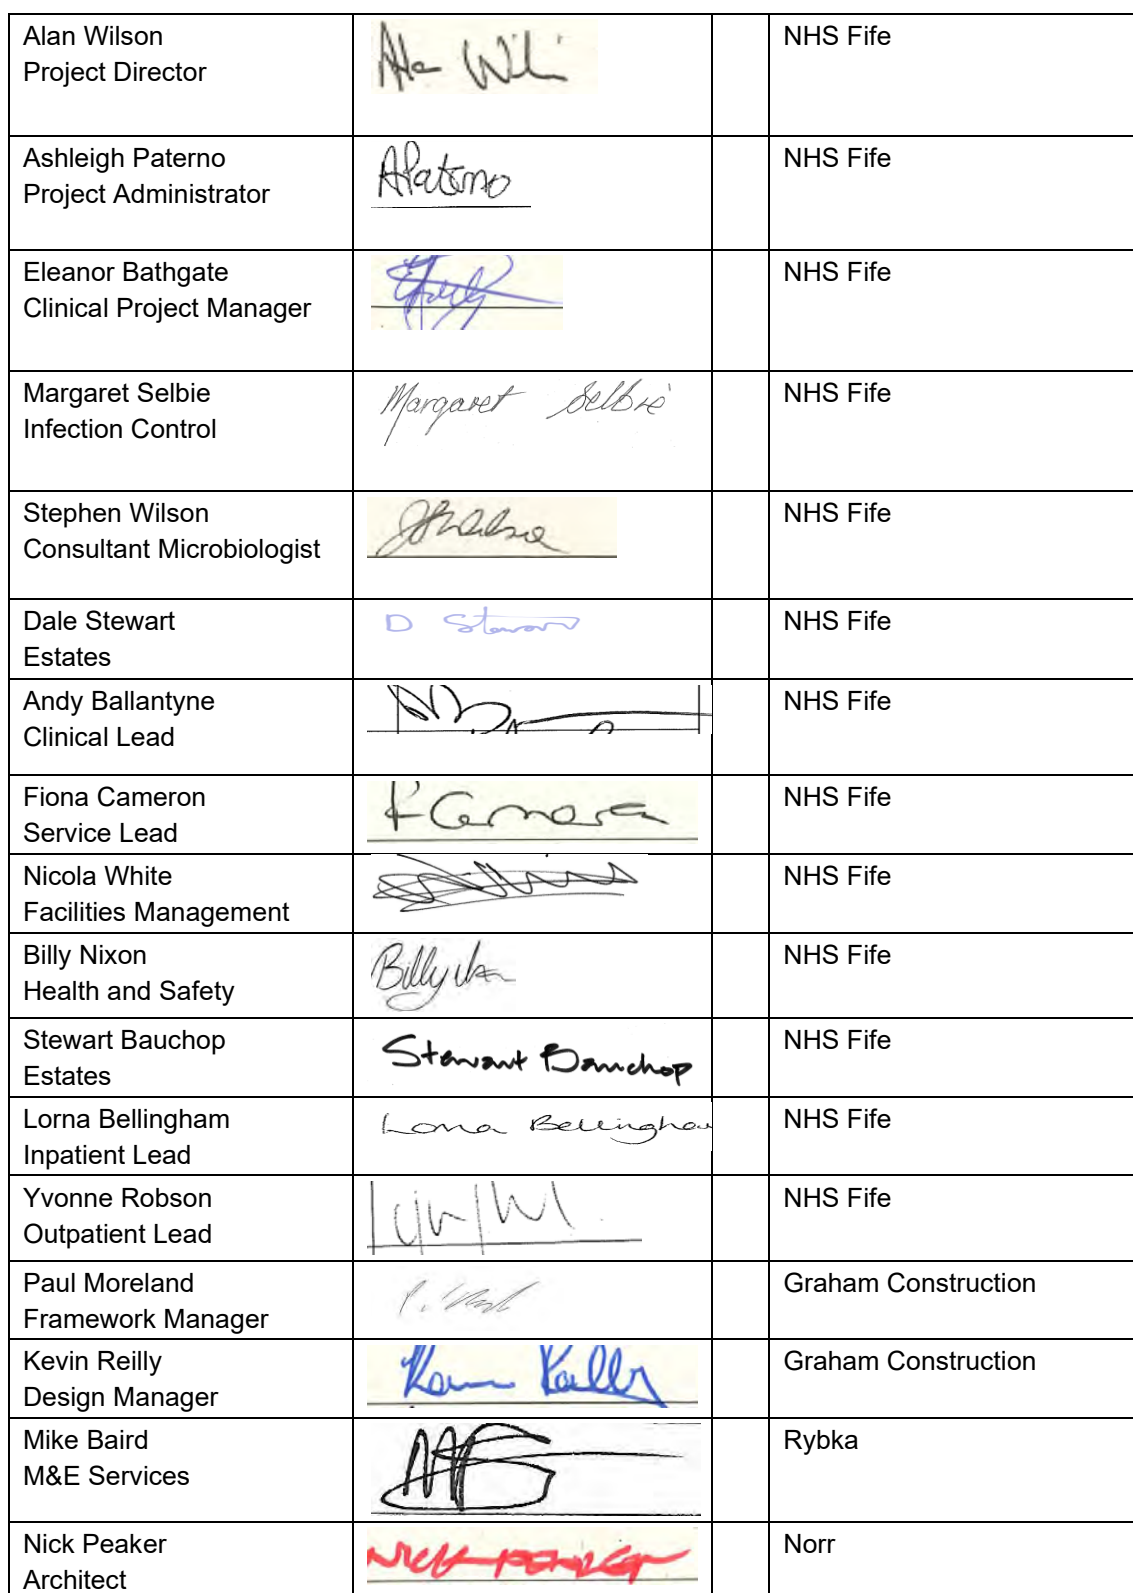 Alan Wilson
Project Director
NHS Fife
Ashleigh Paterno
Project Administrator
APaterno
NHS Fife
Eleanor Bathgate
Clinical Project Manager
NHS Fife
Margaret Selbie
Infection Control
Margaret Selbie
NHS Fife
Stephen Wilson
Consultant Microbiologist
NHS Fife
Dale Stewart
Estates
D Stewart
NHS Fife
Andy Ballantyne
Clinical Lead
NHS Fife
Fiona Cameron
Service Lead
F Cameron
NHS Fife
Nicola White
Facilities Management
NHS Fife
Billy Nixon
Health and Safety
Billy
NHS Fife
Stewart Bauchop
Estates
Stewart Bauchop
NHS Fife
Lorna Bellingham
Inpatient Lead
Lorna Bellingham
NHS Fife
Yvonne Robson
Outpatient Lead
NHS Fife
Paul Moreland
Framework Manager
Graham Construction
Kevin Reilly
Design Manager
Graham Construction
Mike Baird
M&E Services
Rybka
Nick Peaker
Architect
Nick Peaker
Norr